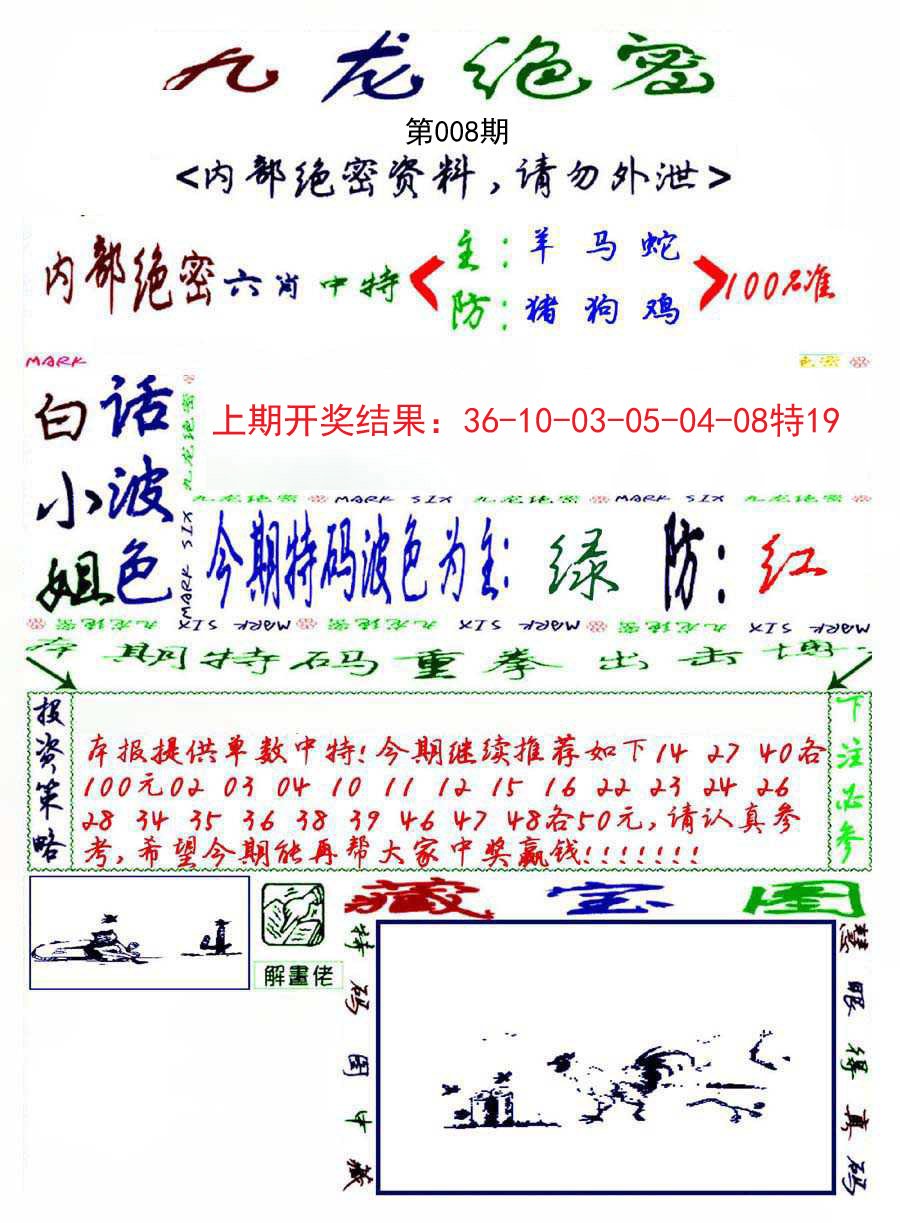 九龙绝密
第008期
<内部绝密资料,请勿外泄>
内部绝密六肖中特
主:羊 马 蛇
防:猪 狗 鸡
100%准
MARK
白话
小波
姐色
九龙绝密 MARK SIX
上期开奖结果：36-10-03-05-04-08特19
九龙绝密 MARK SIX 九龙绝密 MARK SIX 九龙绝密
今期特码波色为主: 绿 防: 红
九龙绝密 MARK SIX 九龙绝密 MARK SIX 九龙绝密 MARK SIX
本期特码重拳出击
投资策略
本报提供单数中特!今期继续推荐如下14 27 40各
100元02 03 04 10 11 12 15 16 22 23 24 26
28 34 35 36 38 39 46 47 48各50元,请认真参
考,希望今期能再帮大家中奖赢钱!!!!!!!
下注必参
解畫佬
藏宝图
特码图中藏
慧眼得真码